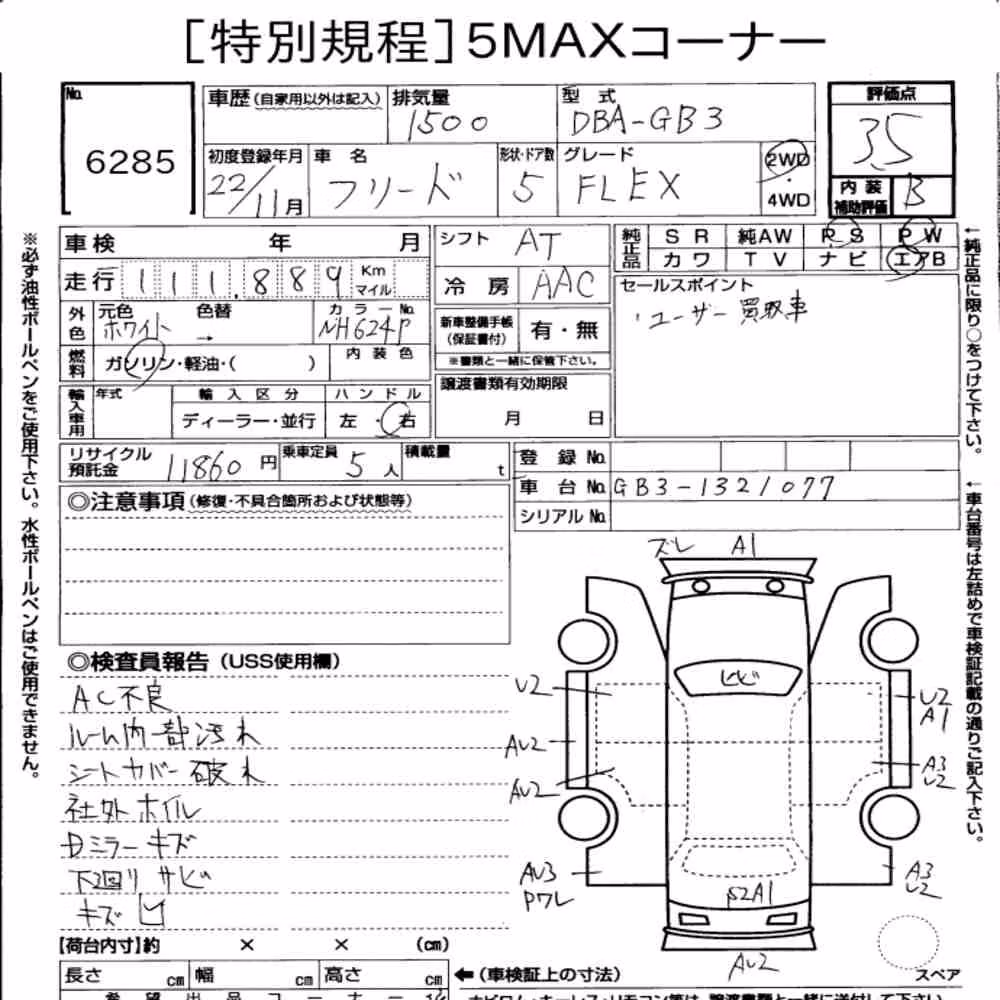 [特別規程]5MAXコーナー
No. 6285
車歴(自家用以外は記入) 排気量 1500 型式 DBA-GB3 評価点 3.5
初度登録年月 22/11月 車名 フリード 形状・ドア数 5 グレード FLEX 2WD・4WD 内装補助評価 B
車検 年 月 シフト AT 純正品 SR 純AW PS PW
走行 111,889 Km マイル 冷房 AAC カワ TV ナビ エアB
外色 元色 ホワイト 色替 → カラーNo. NH624P 新車整備手帳(保証書付) 有・無 セールスポイント
・ユーザー買取車
燃料 ガソリン・軽油・( ) 内装色 ※書類と一緒に保管下さい。
輸入車用 年式 輸入区分 ディーラー・並行 ハンドル 左・右 譲渡書類有効期限 月 日
リサイクル預託金 11860円 乗車定員 5人 積載量 t 登録No.
車台No. GB3-1321077
シリアルNo.
◎注意事項(修復・不具合箇所および状態等)
◎検査員報告(USS使用欄)
AC不良
ルーム内一部汚れ
シートカバー破れ
社外ホイル
Dミラーキズ
下廻りサビ
キズ凹
ズレ A1
ヒビ
U2
AU2
AU2
AU3
Pワレ
U2
A1
A3
U2
A3
U2
AU2
スペア
【荷台内寸】約 × × (cm)
長さ cm 幅 cm 高さ cm ←(車検証上の寸法)
※必ず油性ボールペンをご使用下さい。水性ボールペンはご使用できません。
←純正品に限り○をつけて下さい。
←車台番号は左詰めで車検証記載の通りご記入下さい。